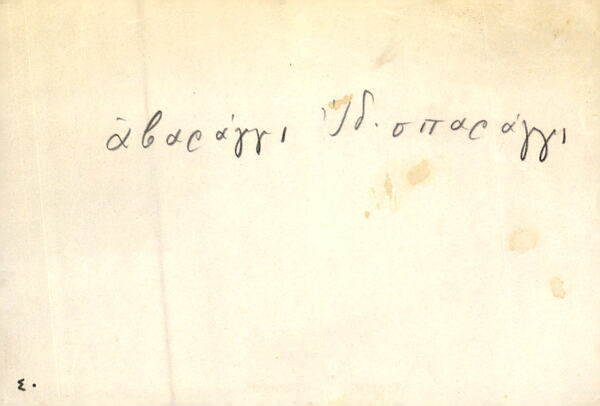 ἀβαράγγι Ἰδ. σπαράγγι
ε.